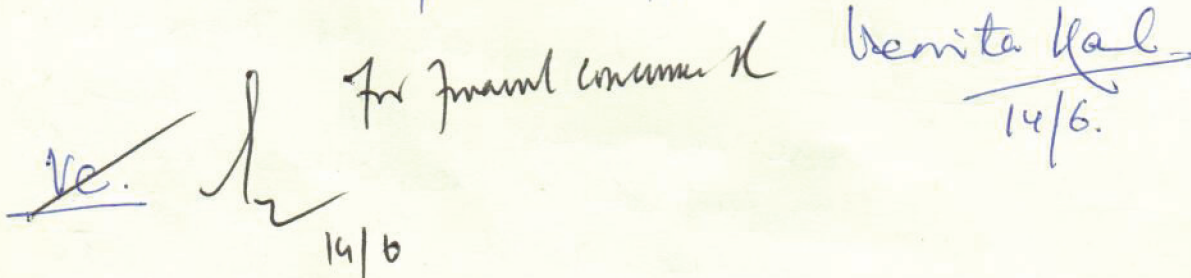 For financial concurrence pl
Kaul
14/6.
VC.
14/6